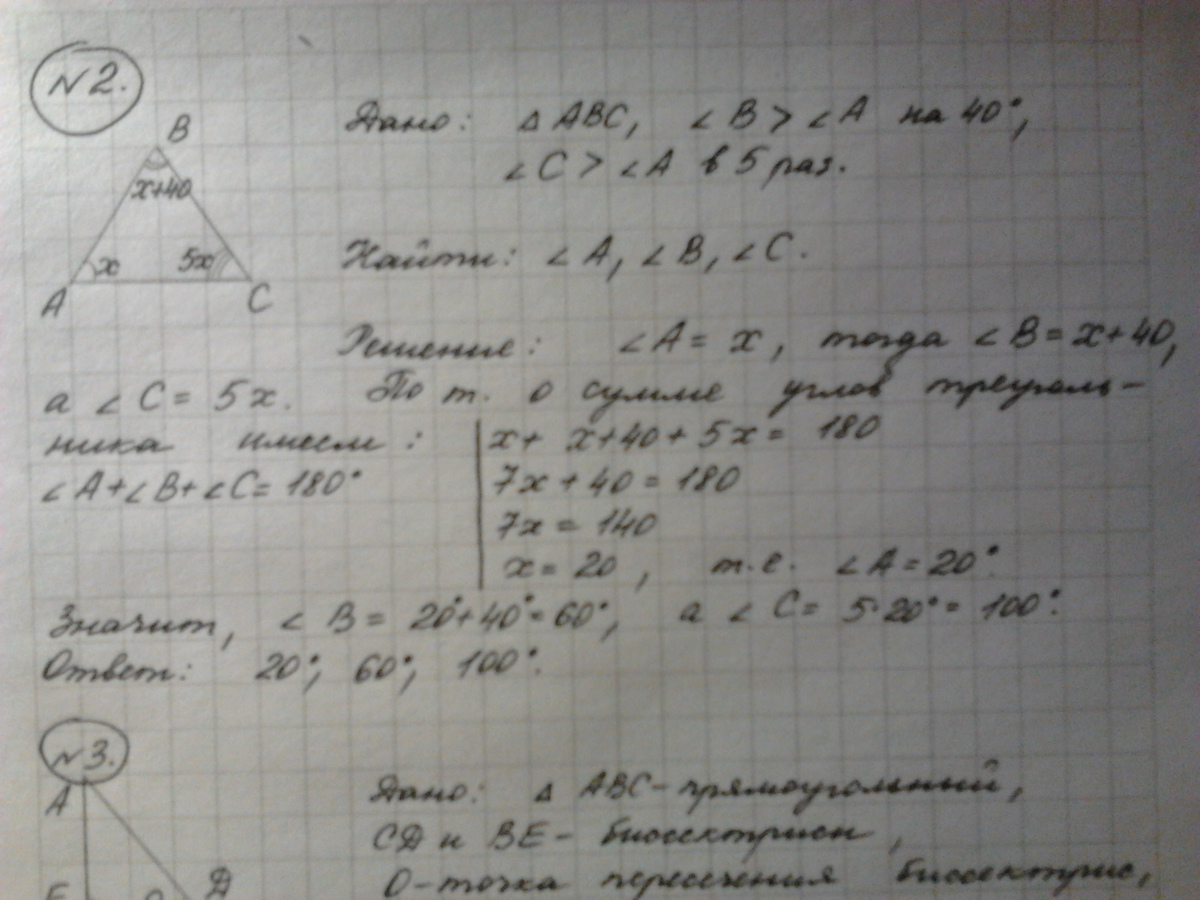 №2.
B
Дано: △ ABC, ∠B > ∠A на 40°,
∠C > ∠A в 5 раз.
x+40
x
5x
A
C
Найти: ∠A, ∠B, ∠C.
Решение: ∠A = x, тогда ∠B = x+40,
а ∠C = 5x. По т. о сумме углов треуголь-
ника имеем:
∠A+∠B+∠C=180°
x+ x+40+5x = 180
7x+40=180
7x=140
x=20, т.е. ∠A=20°.
Значит, ∠B = 20°+40°=60°, а ∠C = 5·20° = 100°.
Ответ: 20°, 60°, 100°.
№3.
A
Дано: △ ABC - прямоугольный,
CD и BE - биссектрисы,
O-точка пересечения биссектрис,
E
O
D